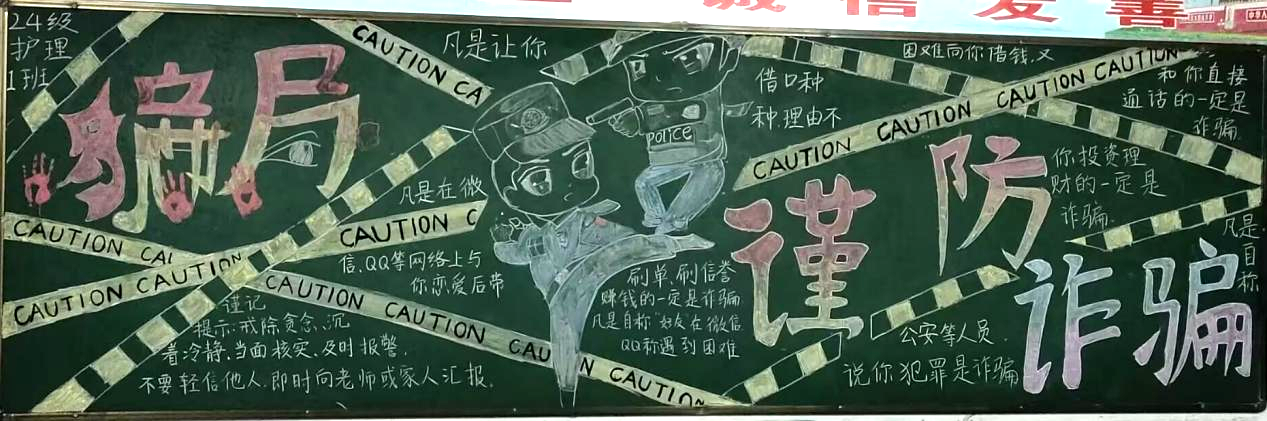 诚信友善
24级
护理
1班
骗局
CAUTION CA
凡是让你
借口种
种理由不
困难向你借钱又
CAUTION CAUTION CAUTION CAUTION
和你直接
通话的一定是
诈骗
POLICE
谨防
诈骗
你投资理
财的一定是
诈骗
凡是
自
称
凡是在微
信、QQ等网络上与
你恋爱后带
CAUTION CAU
CAUTION CAUTION
CAUTION C
CAUTION CAUTION CAU
N CAUTION
CAUTION
刷单、刷信誉
赚钱的一定是诈骗
凡是自称“好友”在微信
QQ称遇到困难
公安等人员
说你犯罪是诈骗
谨记
提示:戒除贪念、沉
着冷静、当面核实、及时报警.
不要轻信他人.即时向老师或家人汇报.